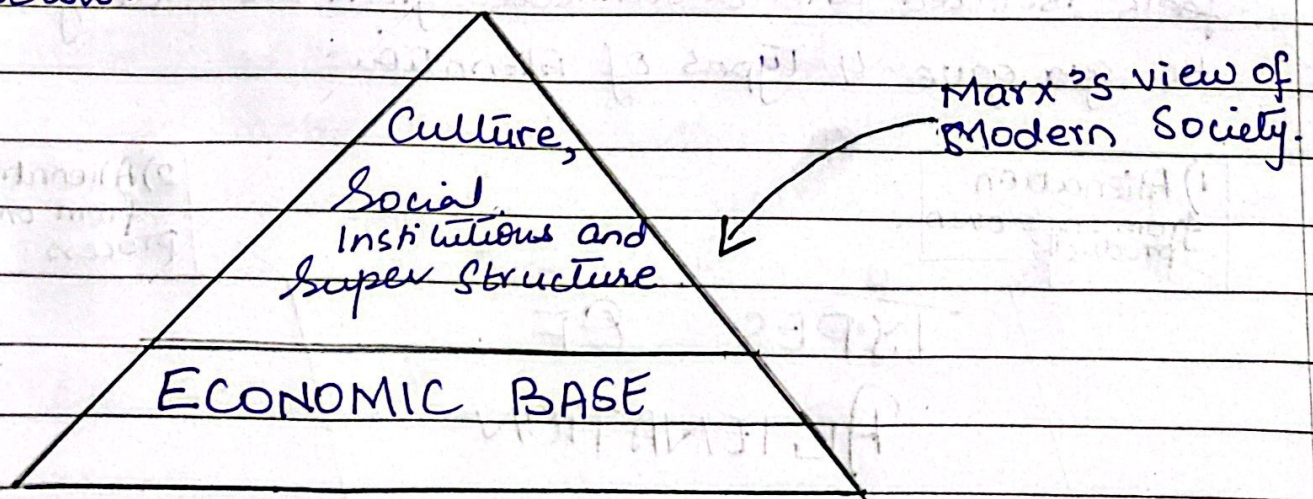 Culture,
Social
Institutions and
Super Structure
ECONOMIC BASE
Marx's view of
Modern Society.